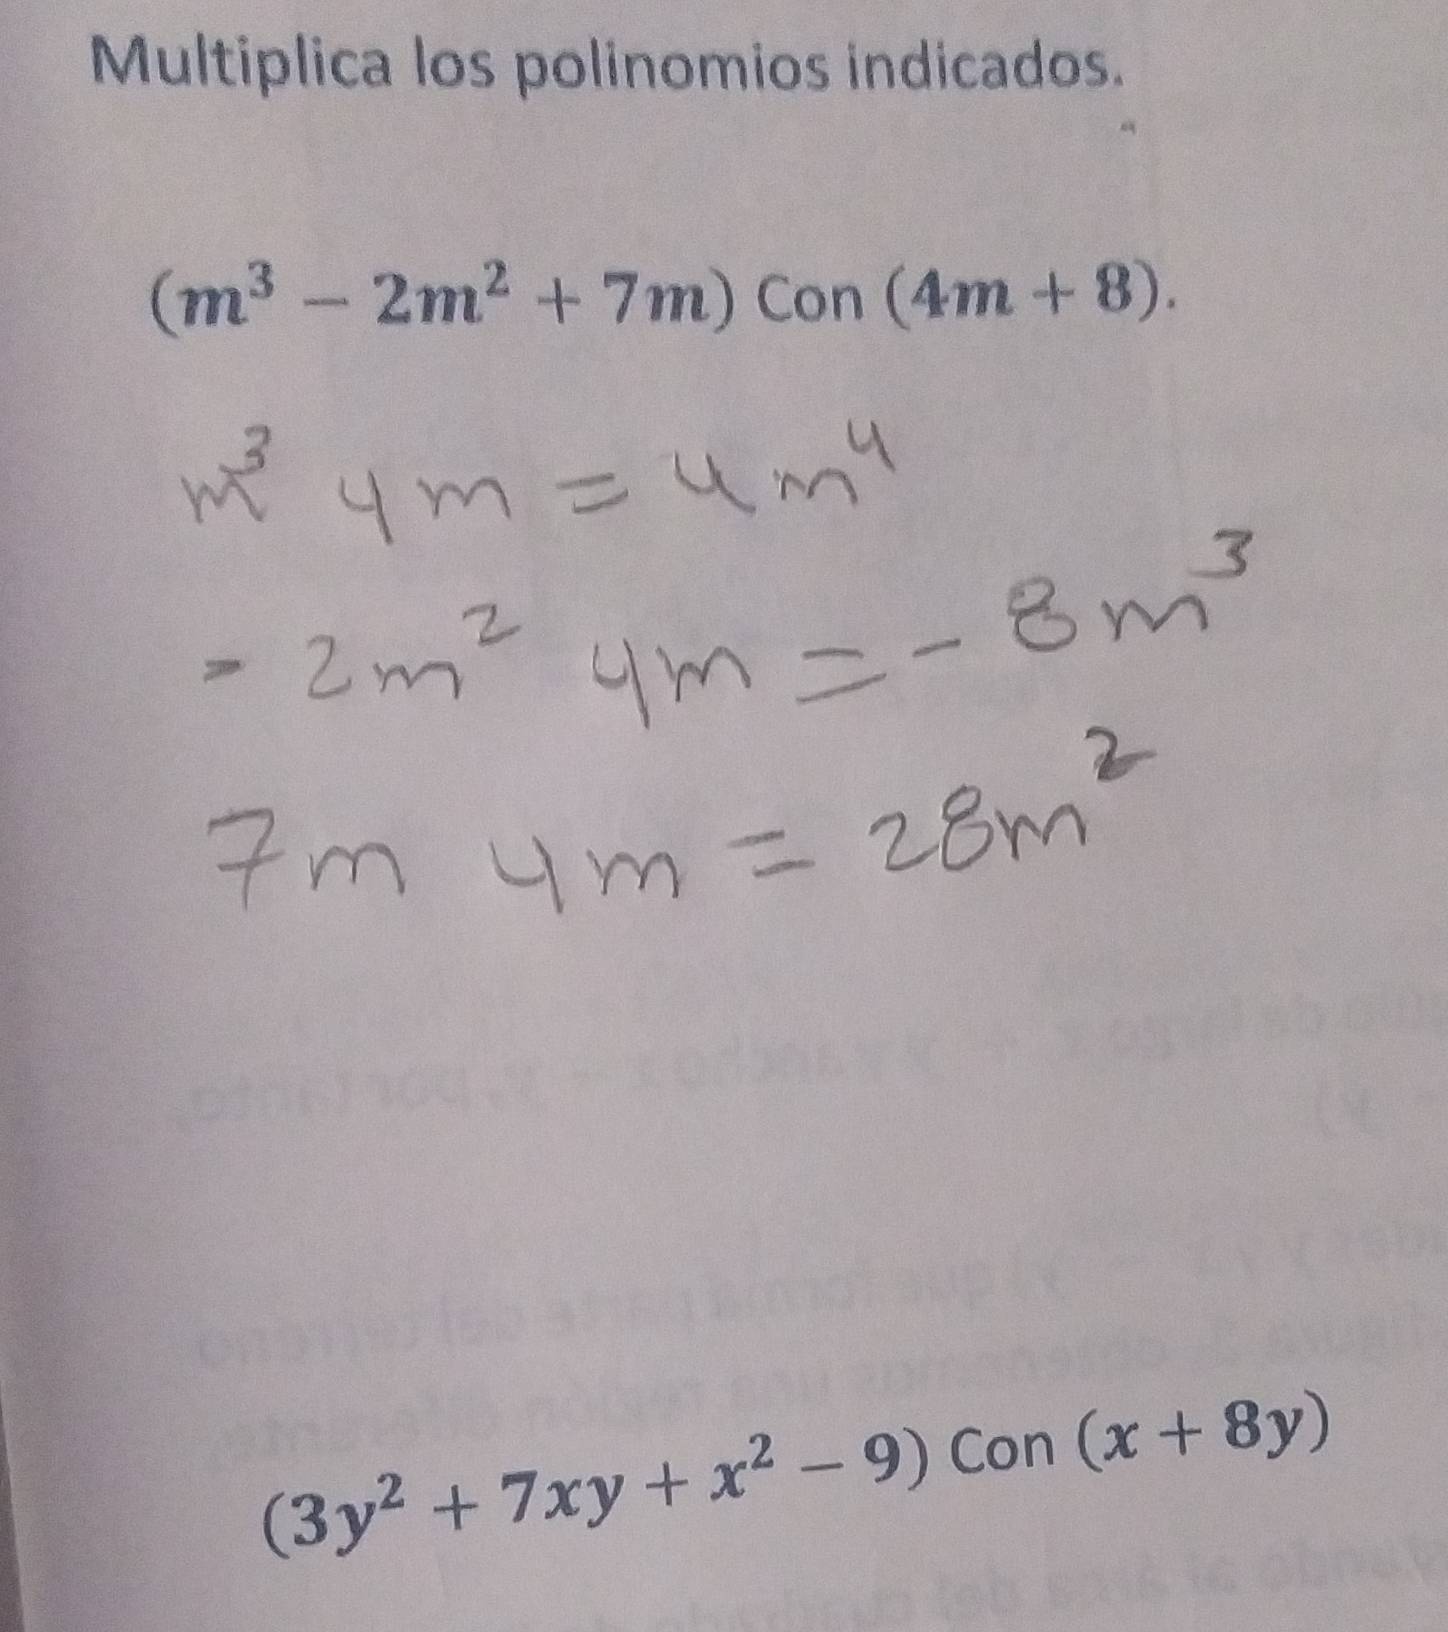 Multiplica los polinomios indicados.
(m³ − 2m² + 7m) Con (4m + 8).
m³ 4m = 4m⁴
- 2m² 4m = - 8m³
7m 4m = 28m²
(3y² + 7xy + x² − 9) Con (x + 8y)